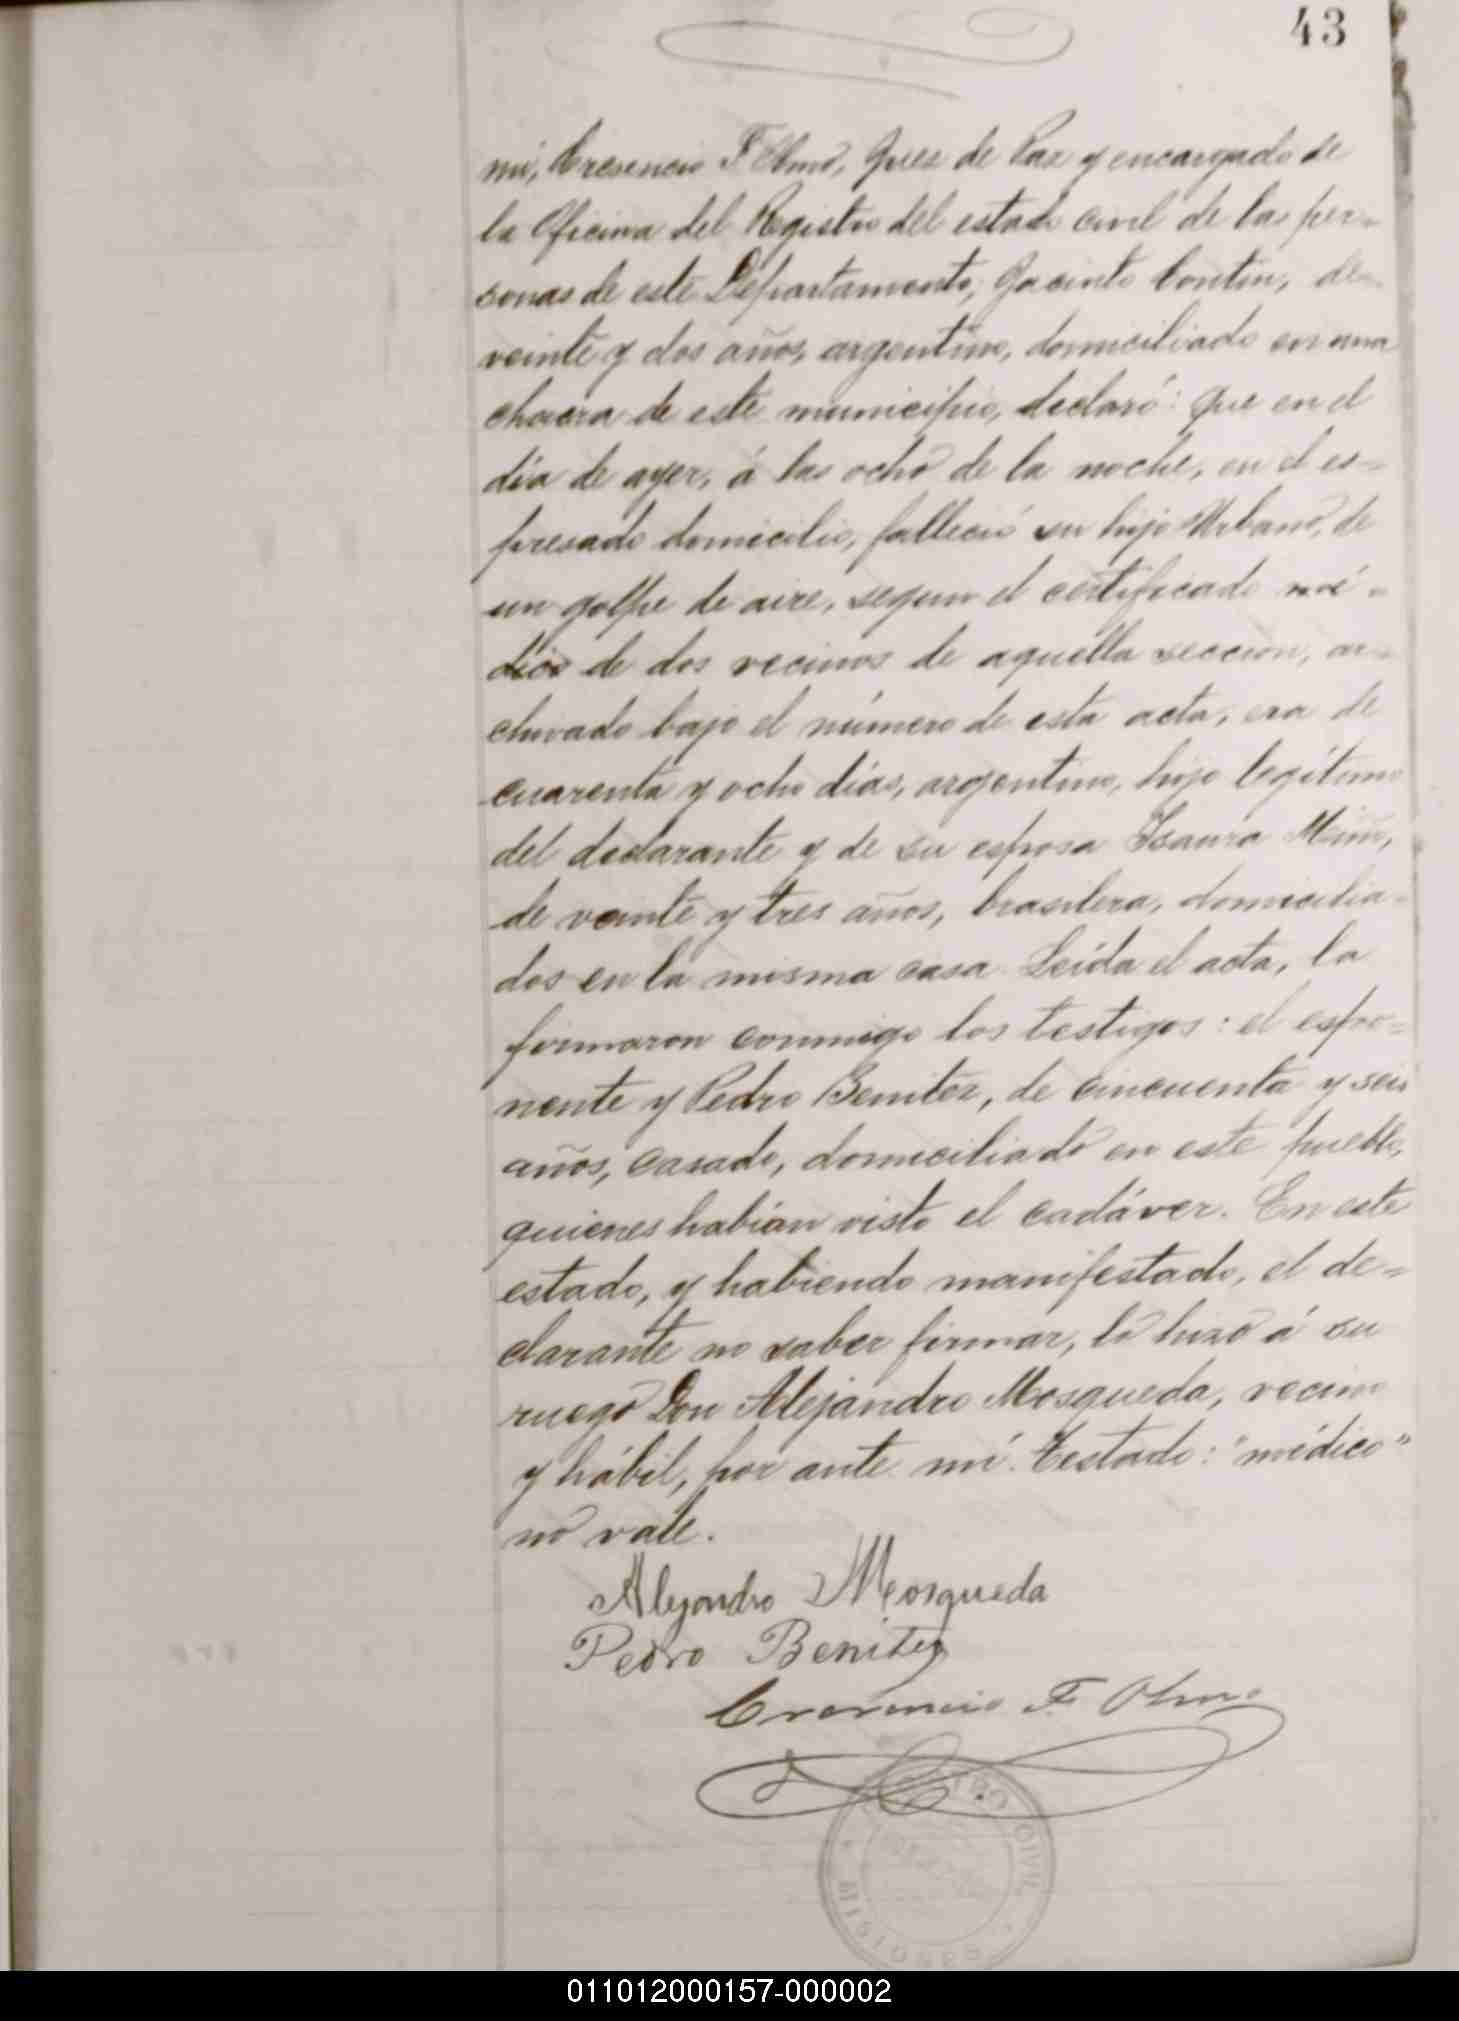 43
mí, Cresencio F. Olmo, Juez de Paz y encargado de
la Oficina del Registro del estado civil de las per-
sonas de este Departamento, Jacinto Contin, de
veinte y dos años, argentino, domiciliado en una
chacra de este municipio, declaró: Que en el
día de ayer, á las ocho de la noche, en el es=
presado domicilio, falleció su hijo Urbano, de
un golpe de aire, segun el certificado mé-
dico de dos vecinos de aquella seccion, ar-
chivado bajo el número de esta acta; era de
cuarenta y ocho días, argentino, hijo legítimo
del declarante y de su esposa Isaura
de veinte y tres años, brasilera, domicilia-
dos en la misma casa. Leída el acta, la
firmaron conmigo los testigos: el espo=
nente y Pedro Benitez, de cincuenta y seis
años, casado, domiciliado en este pueblo,
quienes habían visto el cadáver. En este
estado, y habiendo manifestado, el de=
clarante no saber firmar, lo hizo á su
ruego Don Alejandro Mosqueda, vecino
y hábil, por ante mí. Testado: "médico"
no vale.
Alejandro Mosqueda
Pedro Benitez
Cresencio F. Olmo
REGISTRO CIVIL
MISIONES
011012000157-000002